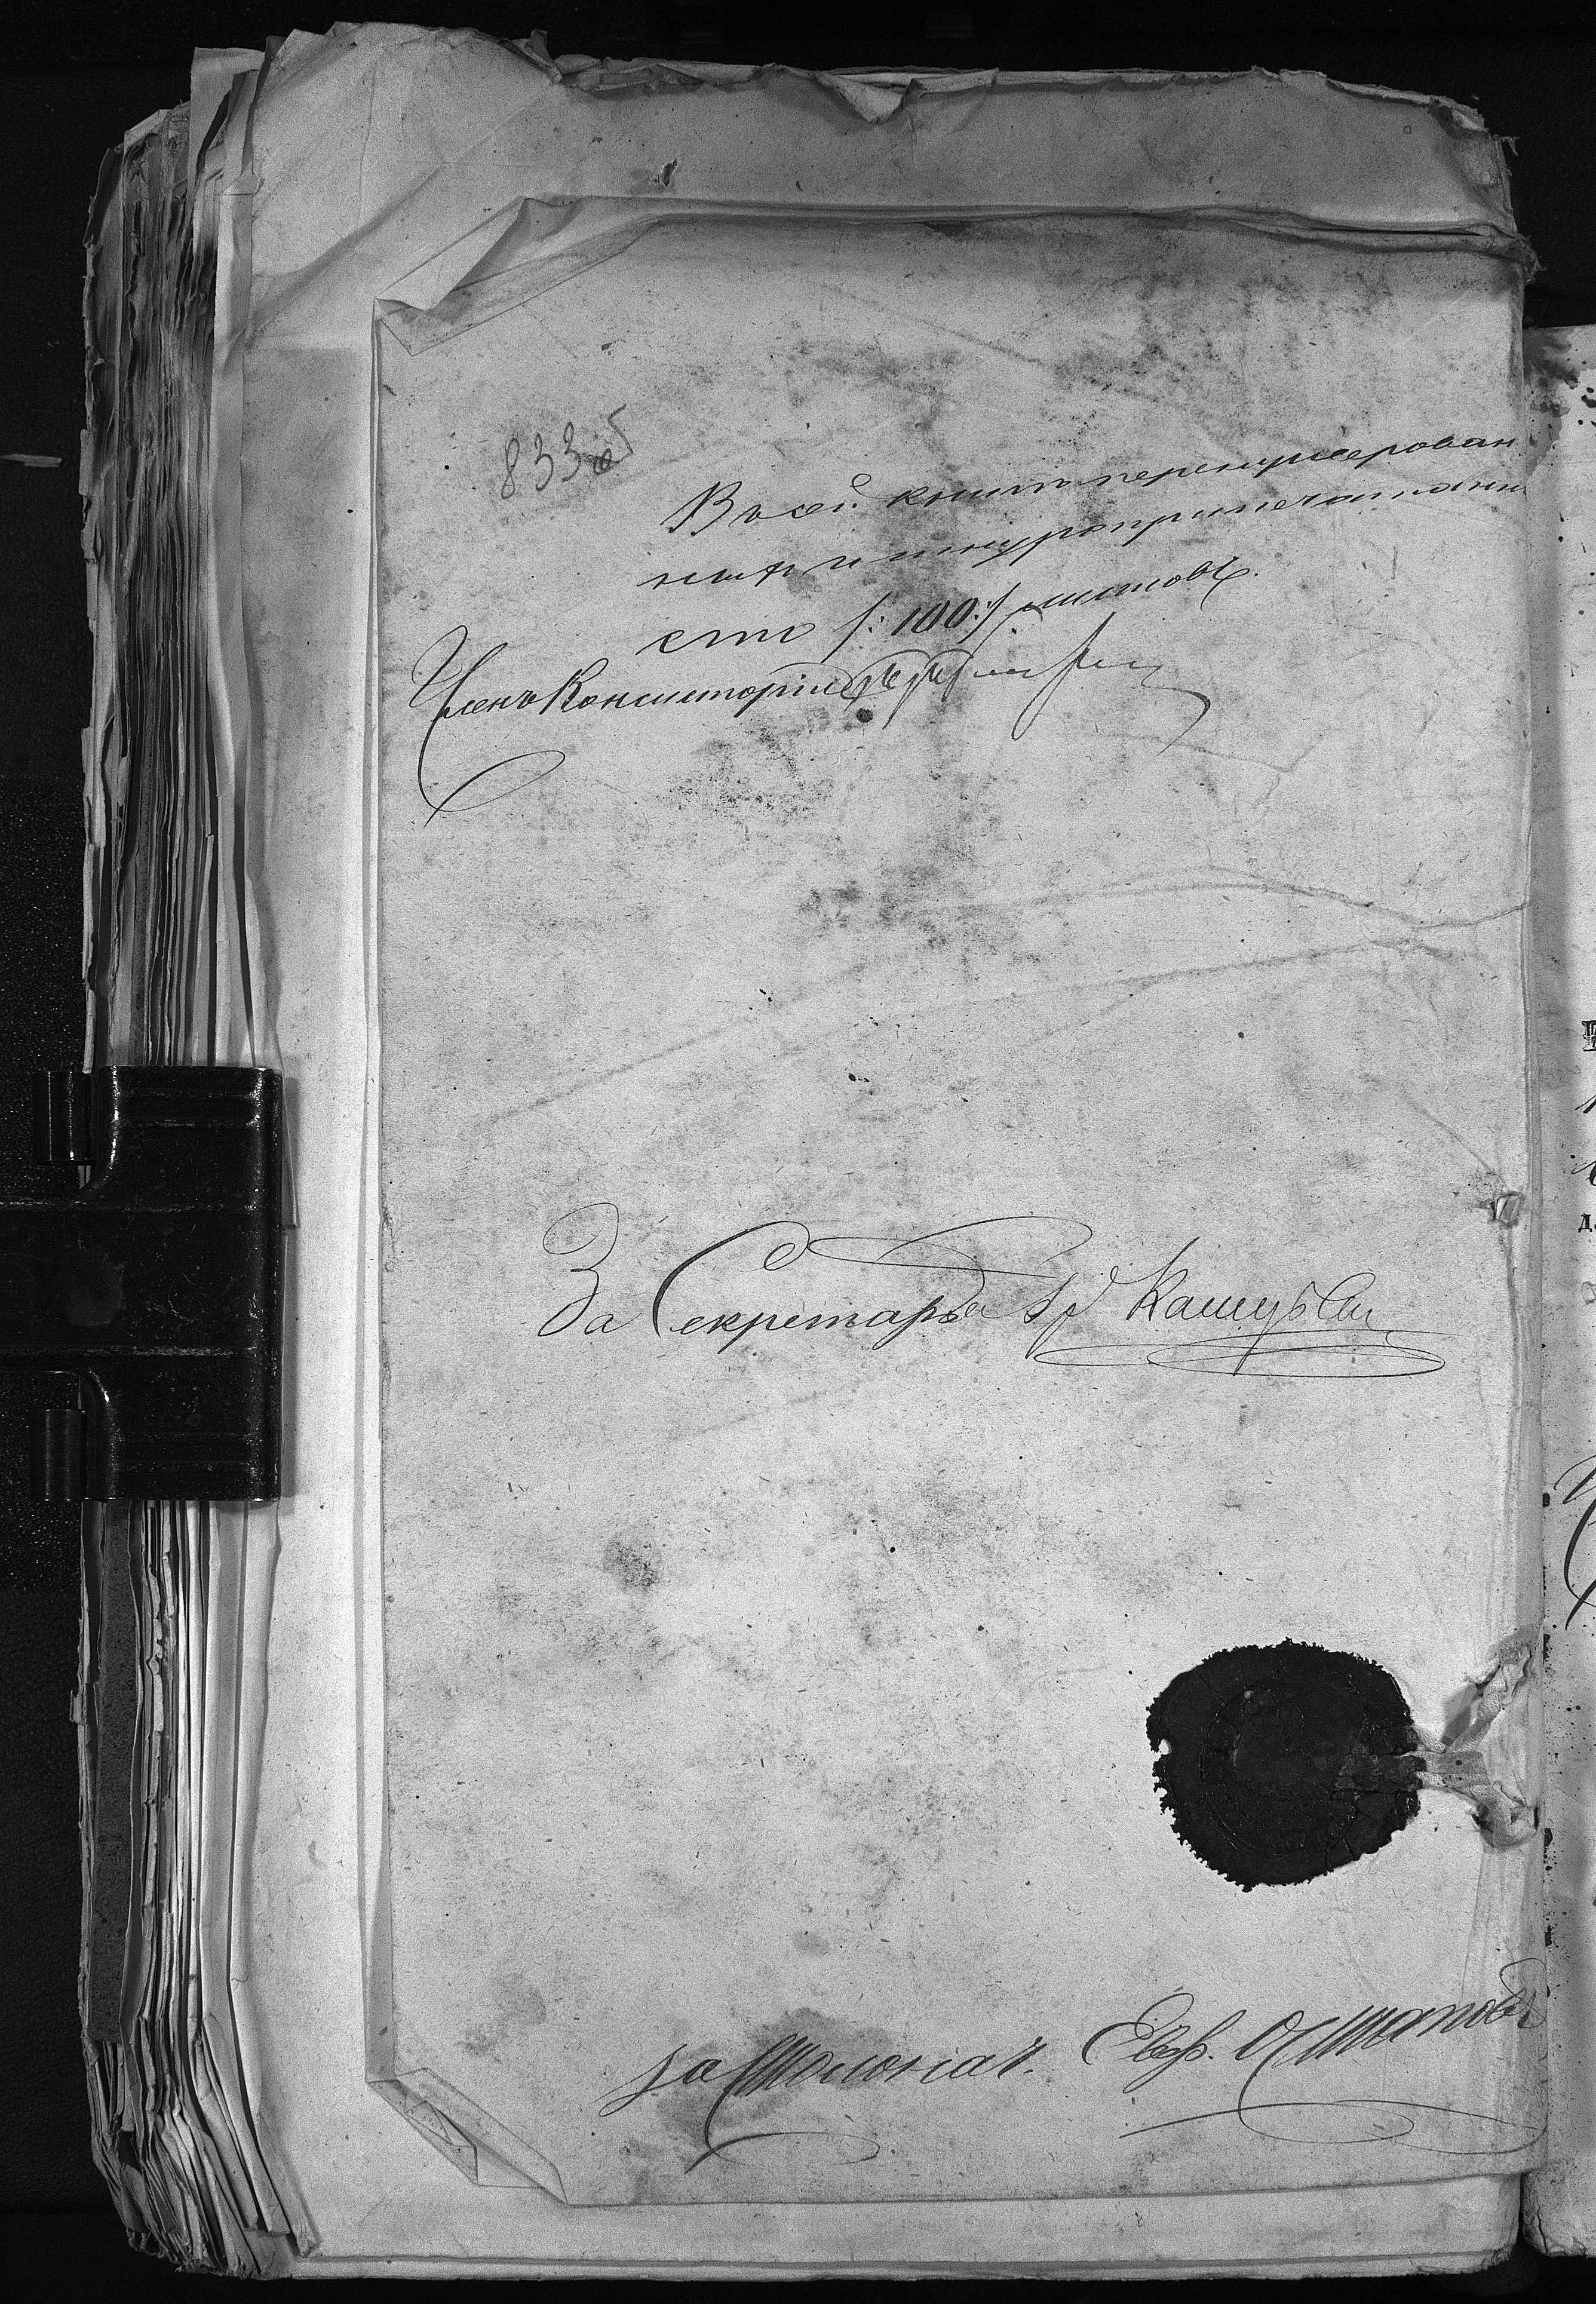 833 об
Въ сей книгѣ перенумерован
ныхъ и шнуроприпечатанн
сто /:100:/ листовъ.
Членъ Консисторіи
За Секретаря Кашубин
за Столонач. Евф. Осташовъ